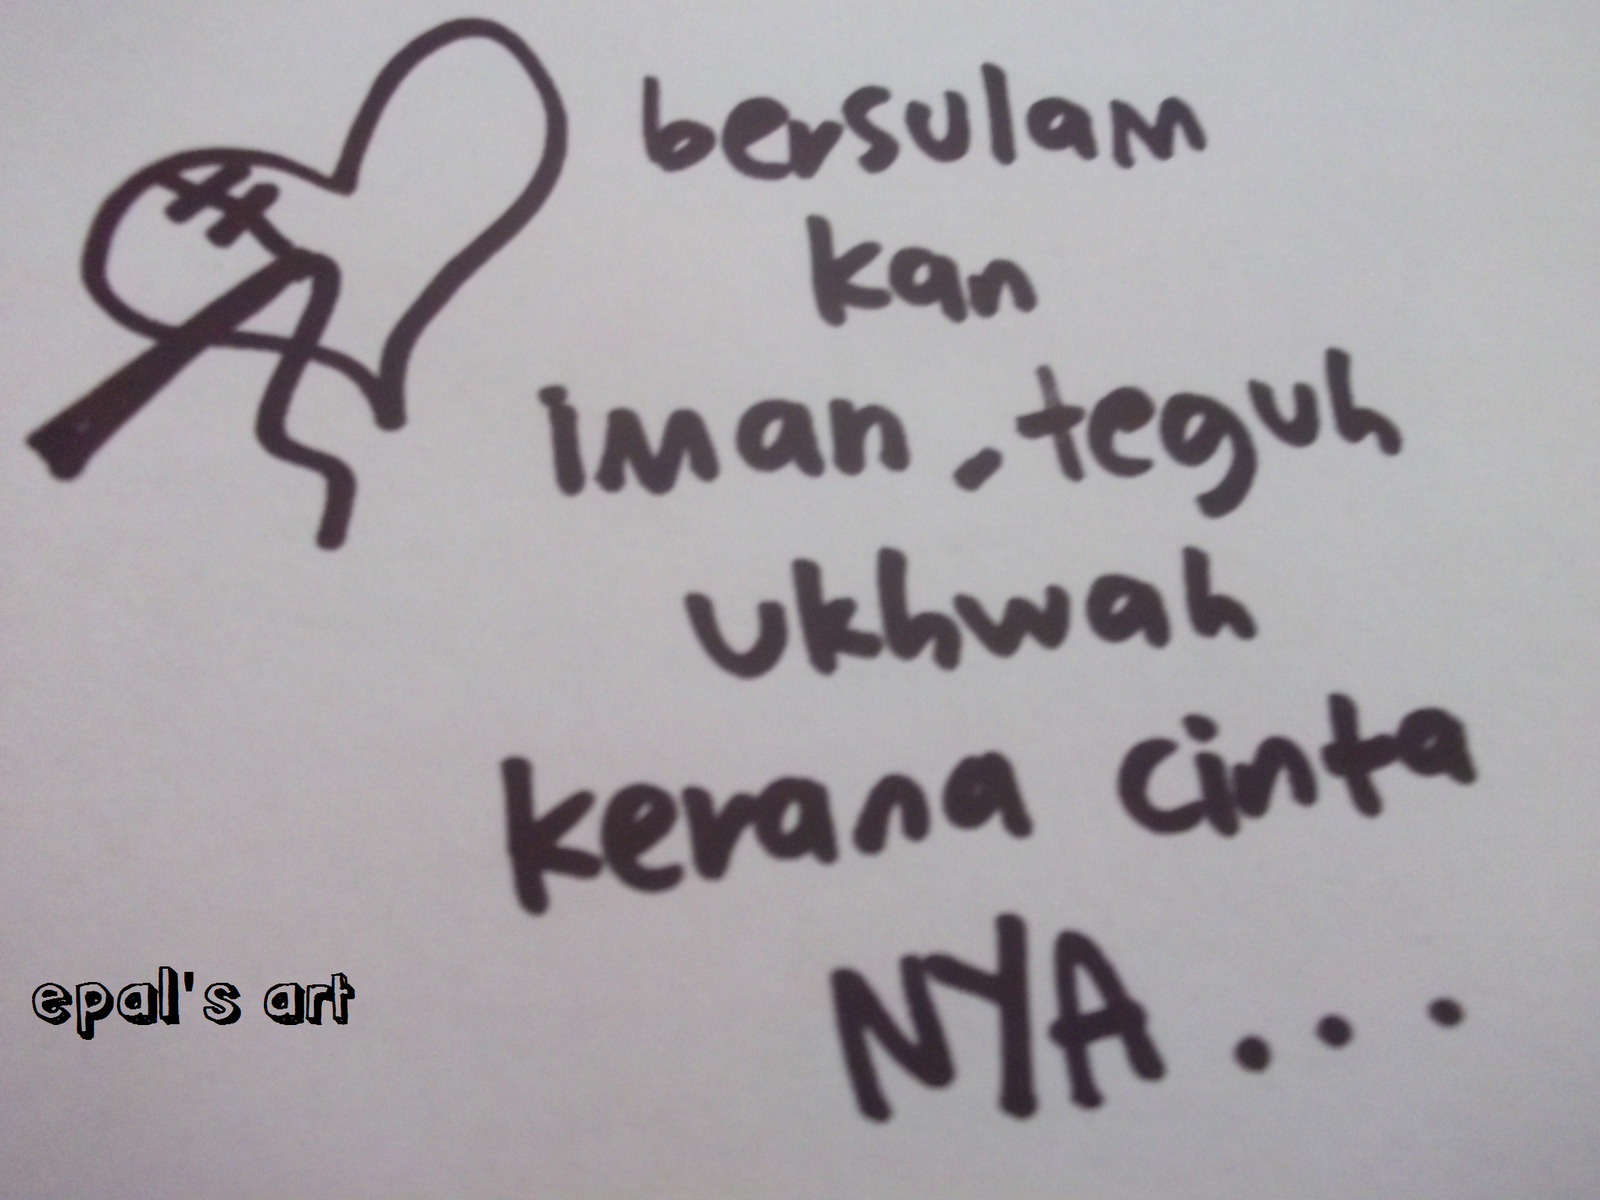 bersulam
kan
iman, teguh
ukhwah
kerana cinta
NYA...
epal's art